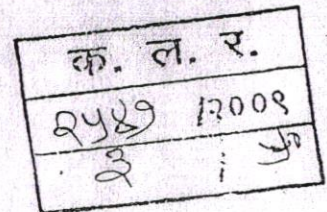 क. ल. र.
२५४७ १२००९
३